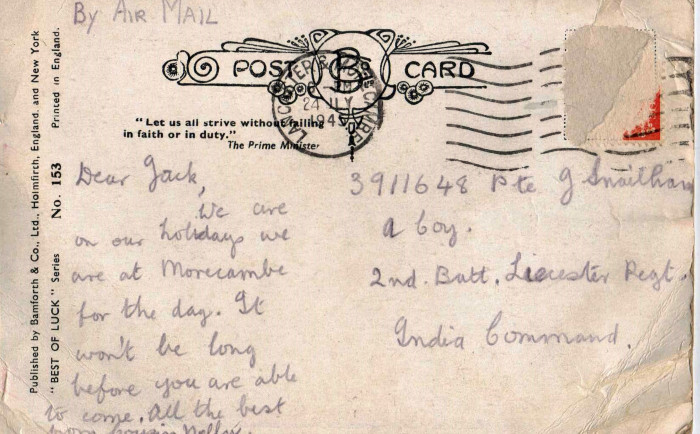 By AIR MAIL
POST CARD
B
LANCASTER &
24 JLY
1945
"Let us all strive without failing
in faith or in duty."
The Prime Minister
Published by Bamforth & Co., Ltd., Holmfirth, England, and New York
"BEST OF LUCK" Series No. 153 Printed in England.
Dear Jack,
We are
on our holidays we
are at Morecambe
for the day. It
won't be long
before you are able
to come. All the best
from cousin Nellie.
3911648 Pte J Snaitham
A Coy.
2nd. Batt. Liecester Regt.
India Command.